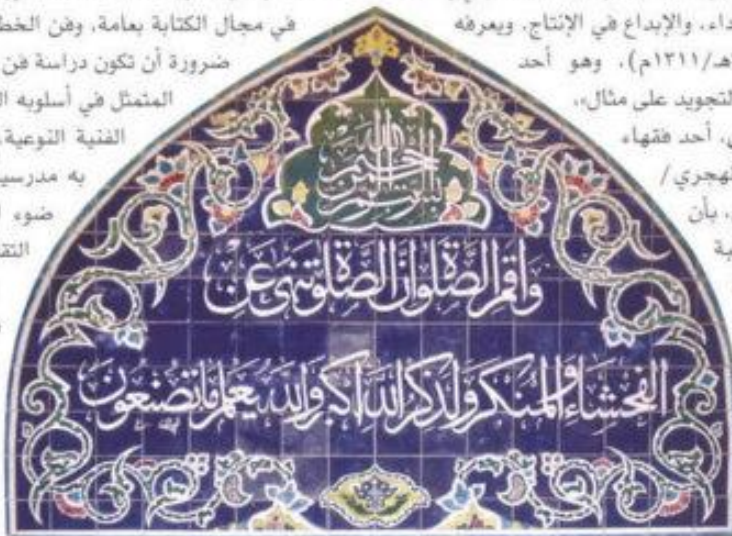 داء، والإبداع في الإنتاج. ويعرفه
هـ/١٣١١م)، وهو أحد
لتجويد على مثال»،
أحد فقهاء
لهجري/
بأن
في مجال الكتابة بعامة، وفن الخط
ضرورة أن تكون دراسة فن
المتمثل في أسلوبه
الفنية النوعية،
به مدرسي
ضوء
بسم الله الرحمن الرحيم
واقم الصلوة ان الصلوة تنهى عن
الفحشاء والمنكر ولذكر الله اكبر والله يعلم ما تصنعون